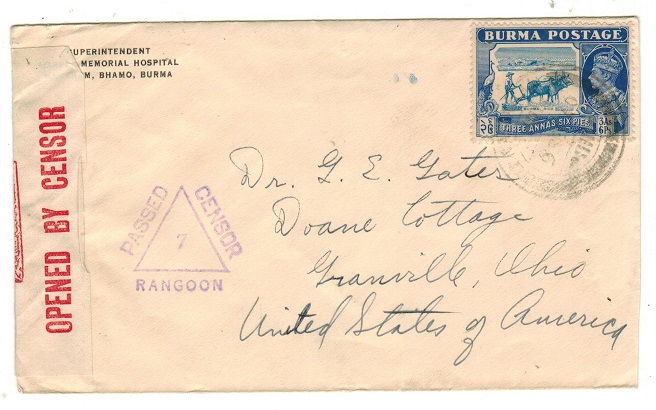 UPERINTENDENT
MEMORIAL HOSPITAL
M, BHAMO, BURMA
BURMA POSTAGE
THREE ANNAS SIX PIES
OPENED BY CENSOR
PASSED CENSOR
7
RANGOON
Dr. G. E. Gates
Doane Cottage
Granville, Ohio
United States of America